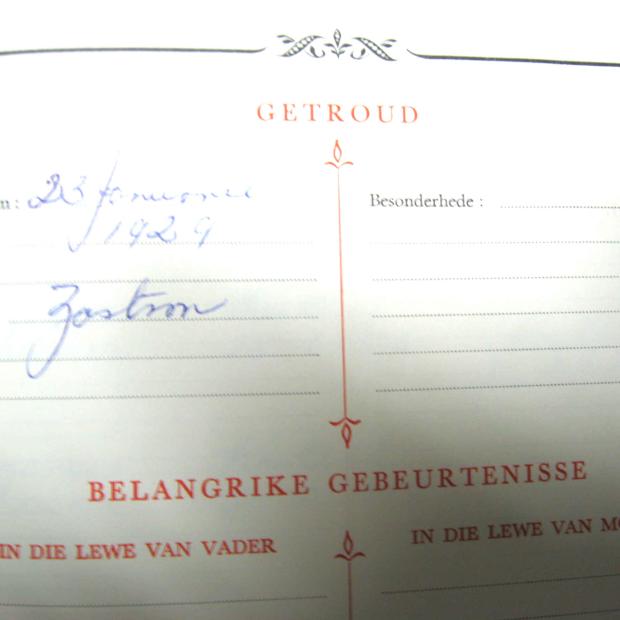 GETROUD
n: 23 Januarie
1929
Zastron
Besonderhede :
BELANGRIKE GEBEURTENISSE
IN DIE LEWE VAN VADER
IN DIE LEWE VAN MO